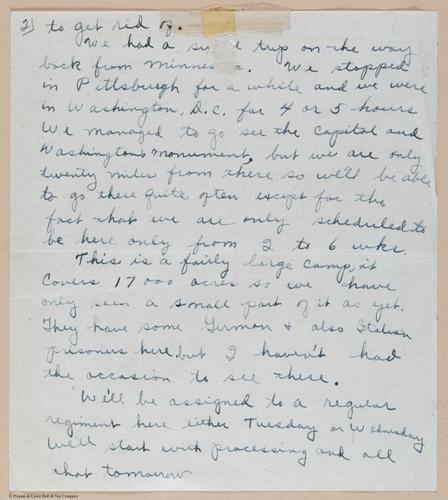 2) to get rid of.
We had a trip on the way
back from Minnesota. We stopped
in Pittsburgh for a while and we were
in Washington, D.C. for 4 or 5 hours
We managed to go see the Capital and
Washington's monument, but we are only
twenty miles from there so we'll be able
to go there quite often except for the
fact that we are only scheduled to
be here only from 2 to 6 wks.
This is a fairly large camp, it
covers 17000 acres so we have
only seen a small part of it as yet.
They have some German & also Italian
prisoners here, but I haven't had
the occasion to see these.
We'll be assigned to a regular
regiment here either Tuesday or Wednesday
We'll start with processing and all
that tomorrow